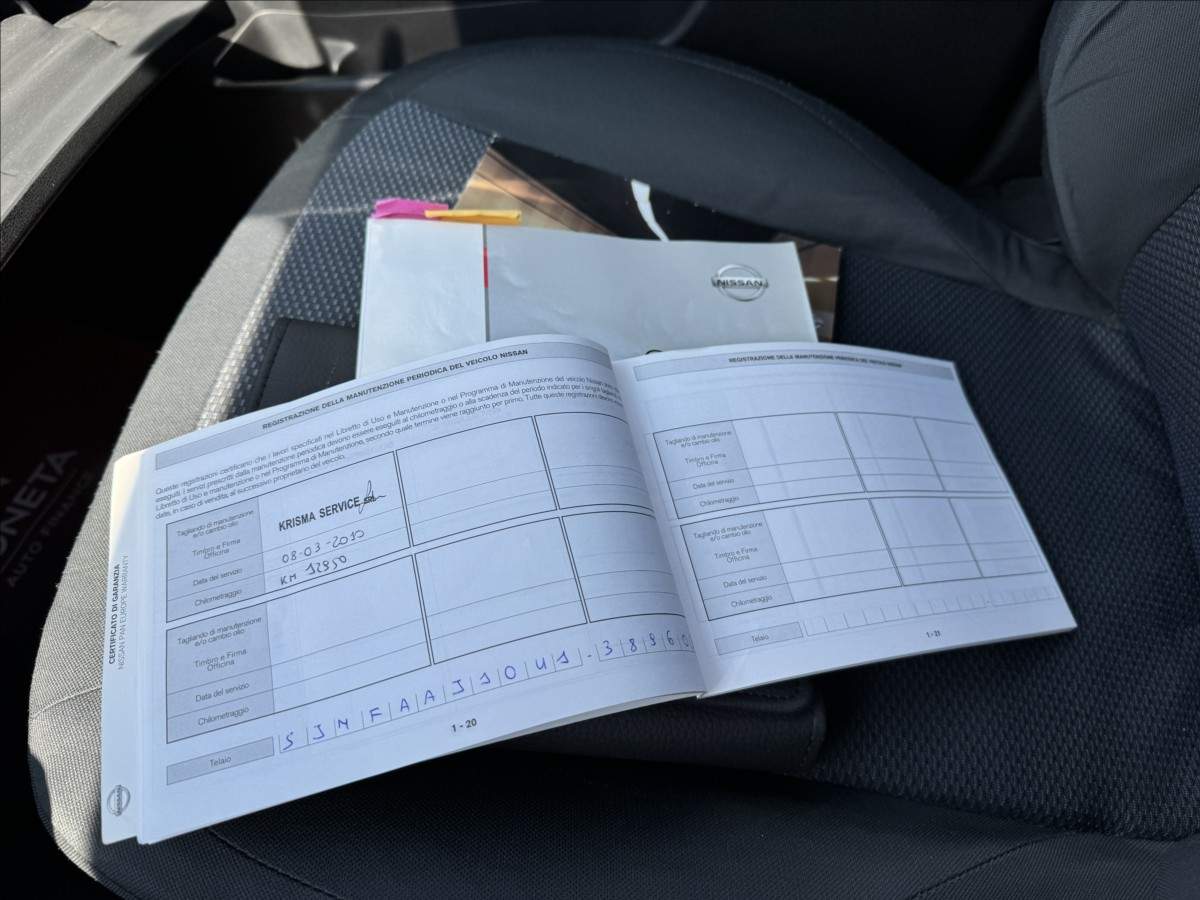 NISSAN
REGISTRAZIONE DELLA MANUTENZIONE PERIODICA DEL VEICOLO NISSAN
Queste registrazioni certificano che i lavori specificati nel Libretto di Uso e Manutenzione o nel Programma di Manutenzione del veicolo Nissan
eseguiti. I servizi prescritti dalla manutenzione periodica devono essere eseguiti al chilometraggio o alla scadenza del periodo indicato per i singoli
Libretto di Uso e manutenzione o nel Programma di Manutenzione, secondo quale termine viene raggiunto per primo. Tutte queste registrazioni devono
date, in caso di vendita, al successivo proprietario del veicolo.
Tagliando di manutenzione
e/o cambio olio
Timbro e Firma
Officina
KRISMA SERVICE
Data del servizio
08-03-2010
Chilometraggio
KM 12850
Tagliando di manutenzione
e/o cambio olio
Timbro e Firma
Officina
Data del servizio
Chilometraggio
Telaio
SJNFAAJ10U1-38960
1 - 20
CERTIFICATO DI GARANZIA
NISSAN PAN EUROPE WARRANTY
REGISTRAZIONE DELLA MANUTENZIONE PERIODICA DEL VEICOLO NISSAN
Tagliando di manutenzione
e/o cambio olio
Timbro e Firma
Officina
Data del servizio
Chilometraggio
Tagliando di manutenzione
e/o cambio olio
Timbro e Firma
Officina
Data del servizio
Chilometraggio
Telaio
1 - 21
ONETA
AUTO